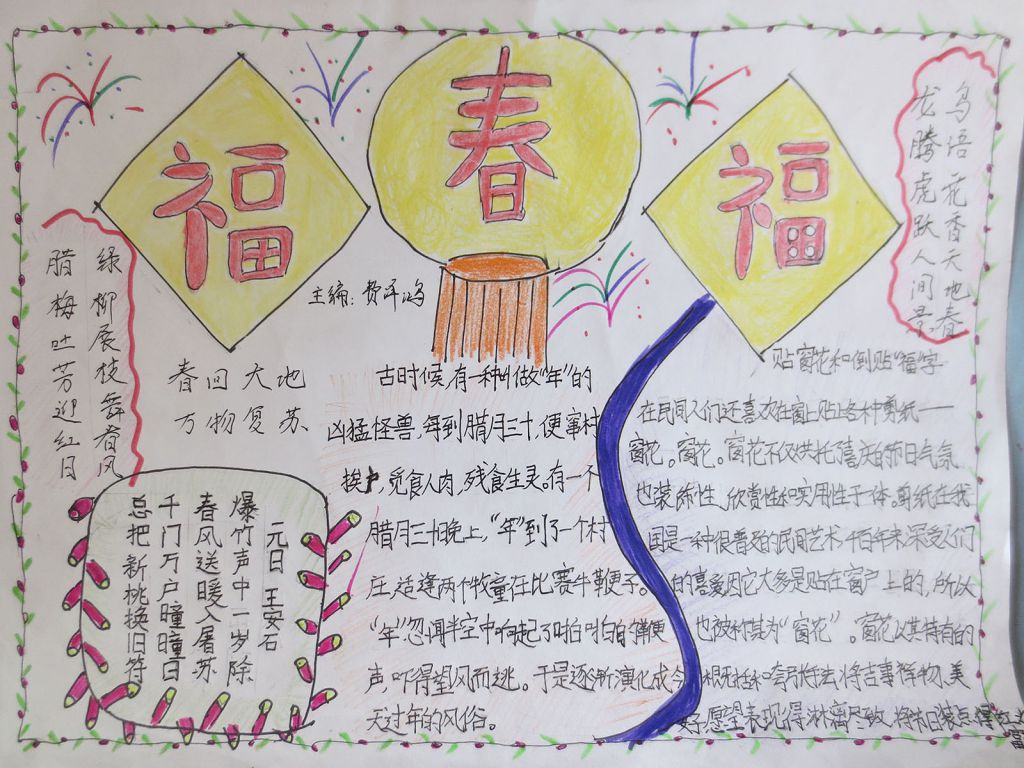 福
春
福
主编:费泽鸿
鸟语花香天地春
龙腾虎跃人间景
绿柳展枝舞春风
腊梅吐芳迎红日
春回大地
万物复苏
元日
王安石
爆竹声中一岁除
春风送暖入屠苏
千门万户曈曈日
总把新桃换旧符
古时候,有一种叫做“年”的
凶猛怪兽,每到腊月三十,便窜村
挨户,觅食人肉,残食生灵。有一个
腊月三十晚上,“年”到了一个村
庄,适逢两个牧童在比赛牛鞭子。
“年”忽闻半空中响起了啪啪的鞭
声,吓得望风而逃。于是逐渐演化成今
天过年的风俗。
贴窗花和倒贴“福”字
在民间人们还喜欢在窗上贴上各种剪纸——
窗花。窗花。窗花不仅烘托了喜庆的节日气氛
也装饰性、欣赏性和实用性于一体。剪纸在我
国是一种很普及的民间艺术,千百年来深受人们
的喜爱,因它大多是贴在窗户上的,所以
也被称其为“窗花”。窗花以其特有的
概括和夸张手法将吉事祥物、美
好愿望表现得淋漓尽致,将节日装点得红